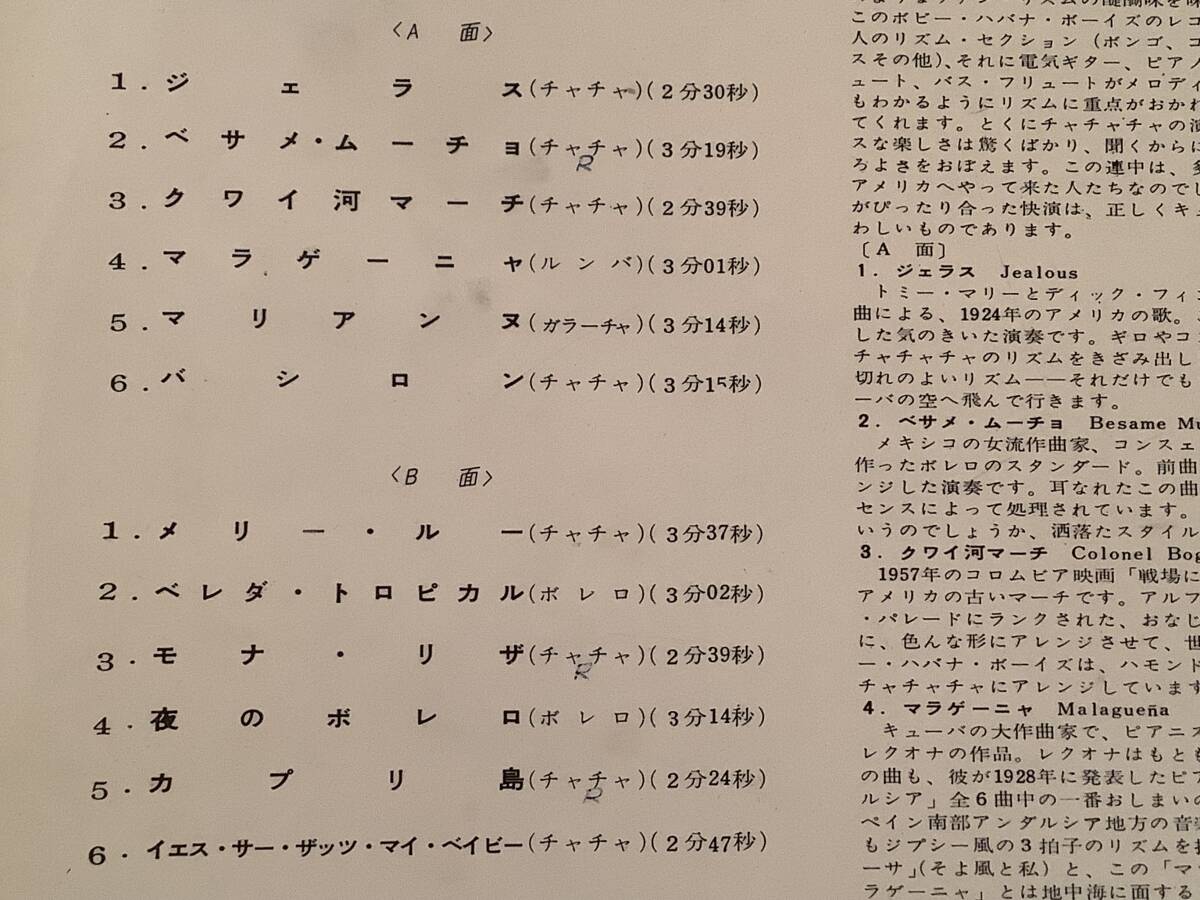 〈A 面〉
1. ジェラス(チャチャ)(2分30秒)
2. ベサメ・ムーチョ(チャチャ)(3分19秒)
R
3. クワイ河マーチ(チャチャ)(2分39秒)
4. マラゲーニャ(ルンバ)(3分01秒)
5. マリアンヌ(ガラーチャ)(3分14秒)
6. バシロン(チャチャ)(3分15秒)
〈B 面〉
1. メリー・ルー(チャチャ)(3分37秒)
2. ベレダ・トロピカル(ボレロ)(3分02秒)
3. モナ・リザ(チャチャ)(2分39秒)
R
4. 夜のボレロ(ボレロ)(3分14秒)
5. カプリ島(チャチャ)(2分24秒)
R
6. イエス・サー・ザッツ・マイ・ベイビー(チャチャ)(2分47秒)
このボビー・ハバナ・ボーイズのレコ
人のリズム・セクション(ボンゴ、コ
スその他)、それに電気ギター、ピアノ
ュート、バス・フリュートがメロディ
もわかるようにリズムに重点がおかれ
てくれます。とくにチャチャチャの演
スな楽しさは驚くばかり、聞くからに
ろよさをおぼえます。この連中は、
アメリカへやって来た人たちなのでし
がぴったり合った快演は、正しくキュ
わしいものであります。
〔A 面〕
1. ジェラス Jealous
トミー・マリーとディック・フィ
曲による、1924年のアメリカの歌。
した気のきいた演奏です。ギロやコ
チャチャチャのリズムをきざみ出し
切れのよいリズム――それだけでも
ーバの空へ飛んで行きます。
2. ベサメ・ムーチョ Besame Mu
メキシコの女流作曲家、コンスェ
作ったボレロのスタンダード。前曲
ンジした演奏です。耳なれたこの曲
センスによって処理されています。
いうのでしょうか、洒落たスタイル
3. クワイ河マーチ Colonel Bog
1957年のコロムビア映画「戦場に
アメリカの古いマーチです。アルフ
・パレードにランクされた、おなじ
に、色んな形にアレンジさせて、世
ー・ハバナ・ボーイズは、ハモンド
チャチャチャにアレンジしています
4. マラゲーニャ Malagueña
キューバの大作曲家で、ピアニス
レクオナの作品。レクオナはもとも
の曲も、彼が1928年に発表したピア
ルシア」全6曲中の一番おしまいの
ペイン南部アンダルシア地方の音楽
もジプシー風の3拍子のリズムを
ーサ」(そよ風と私)と、この「マ
ラゲーニャ」とは地中海に面する